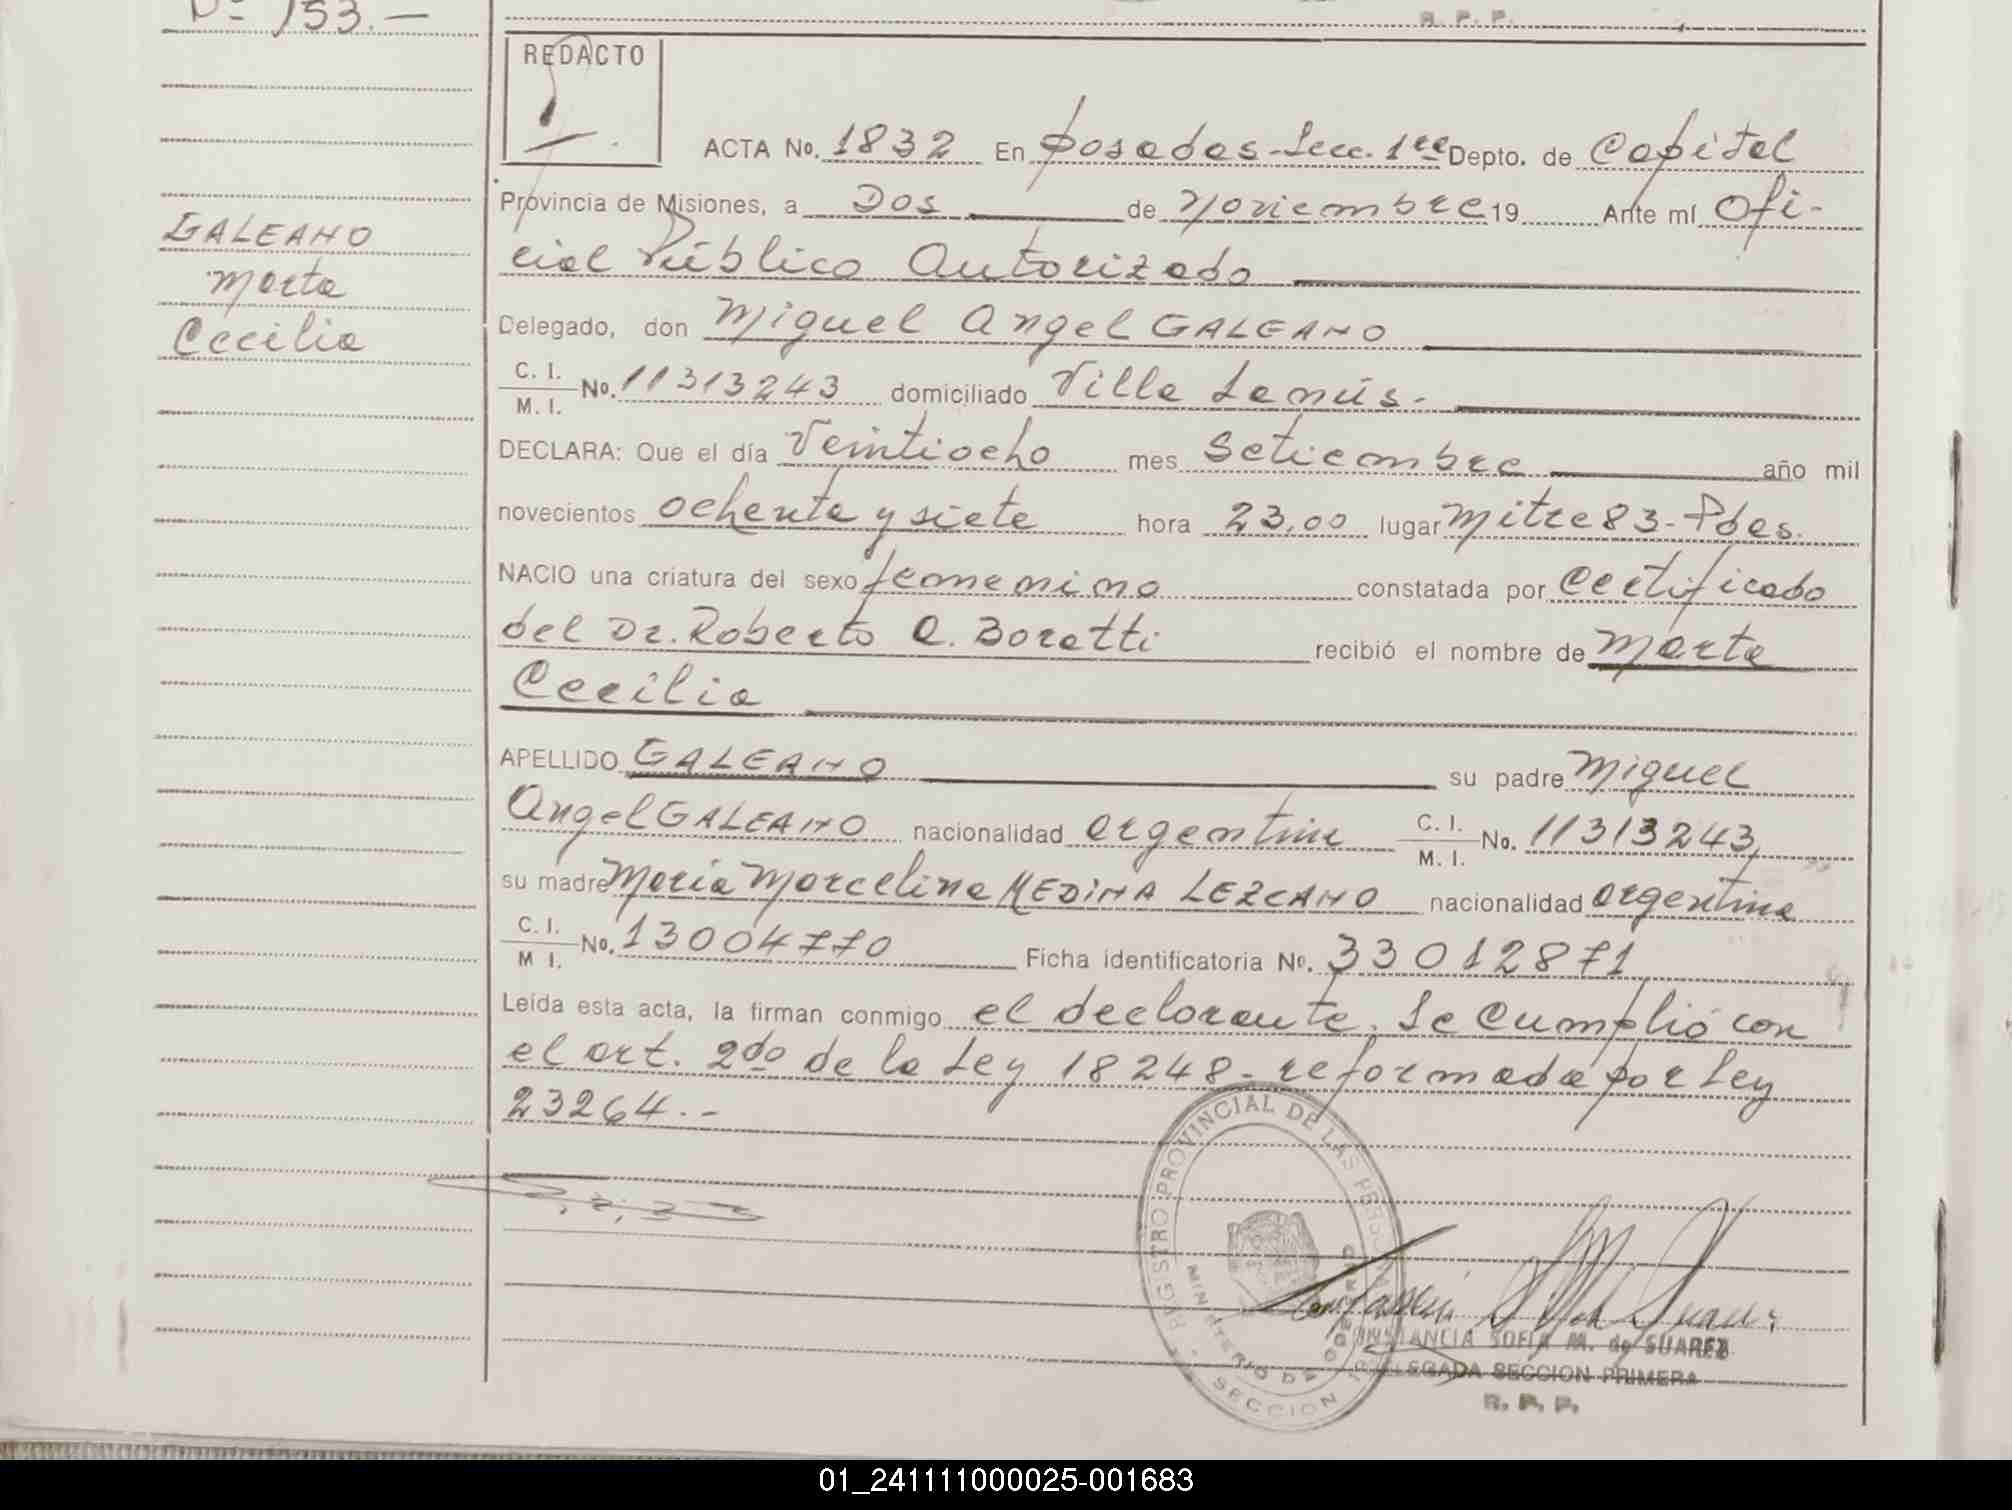 Dº 153.—
R. P. P.
REDACTO
ACTA No. 1832 En Posadas-Secc. 1ra Depto. de Capital
Provincia de Misiones, a Dos de Noviembre 19 Ante mí Ofi-
cial Público Autorizado
GALEANO
Marta
Cecilia
Delegado, don Miguel Angel GALEANO
C. I.
M. I. No. 11313243 domiciliado Villa Lanús.-
DECLARA: Que el día Veintiocho mes Setiembre año mil
novecientos ochenta y siete hora 23,00 lugar Mitre 83-Pdas.
NACIO una criatura del sexo femenino constatada por Certificado
del Dr. Roberto A. Boratti recibió el nombre de Marta
Cecilia
APELLIDO GALEANO su padre Miguel
Angel GALEANO nacionalidad argentina C. I.
M. I. No. 11313243
su madre María Marcelina MEDINA LEZCANO nacionalidad argentina
C. I.
M I. No. 13004770 Ficha identificatoria No. 33012871
Leída esta acta, la firman conmigo el declarante. Se Cumplió con
el art. 2do de la Ley 18248- reformada por Ley
23264.-
REGISTRO PROVINCIAL DE LAS PERSONAS
MINISTERIO DE GOBIERNO
SECCION 1
CONSTANCIA SOFIA M. de SUAREZ
DELEGADA SECCION PRIMERA
R. P. P.
01_241111000025-001683